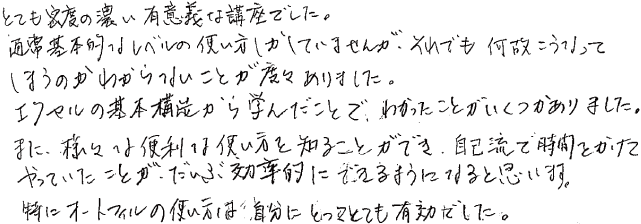 とても密度の濃い有意義な講座でした。
通常基本的なレベルの使い方しかしていませんが、それでも何故こうなって
しまうのかわからないことが度々ありました。
エクセルの基本構造から学んだことで、わかったことがいくつかありました。
また、様々な便利な使い方を知ることができ、自己流で時間をかけて
やっていたことが、だいぶ効率的にできるようになると思います。
特にオートフィルの使い方は自分にとってとても有効でした。